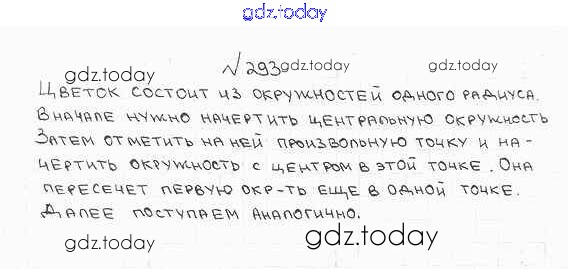 gdz.today
№293 gdz.today
gdz.today gdz.today
Цветок состоит из окружностей одного радиуса.
Вначале нужно начертить центральную окружность
Затем отметить на ней произвольную точку и на-
чертить окружность с центром в этой точке. Она
пересечет первую окр-ть еще в одной точке.
Далее поступаем аналогично.
gdz.today gdz.today